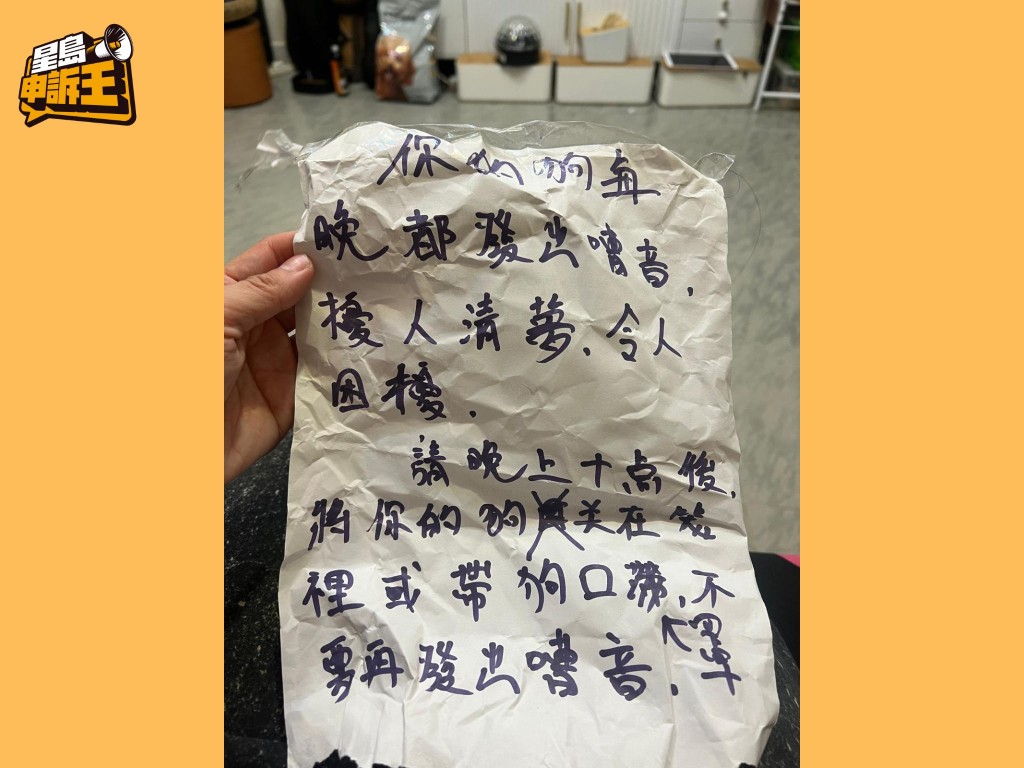 星島
申訴王
你的狗每
晚都發出嘈音,
擾人清夢.令人
困擾.
請晚上十点後,
將你的狗关在笼
裡或帶狗口帶,不
罩
要再發出嘈音.